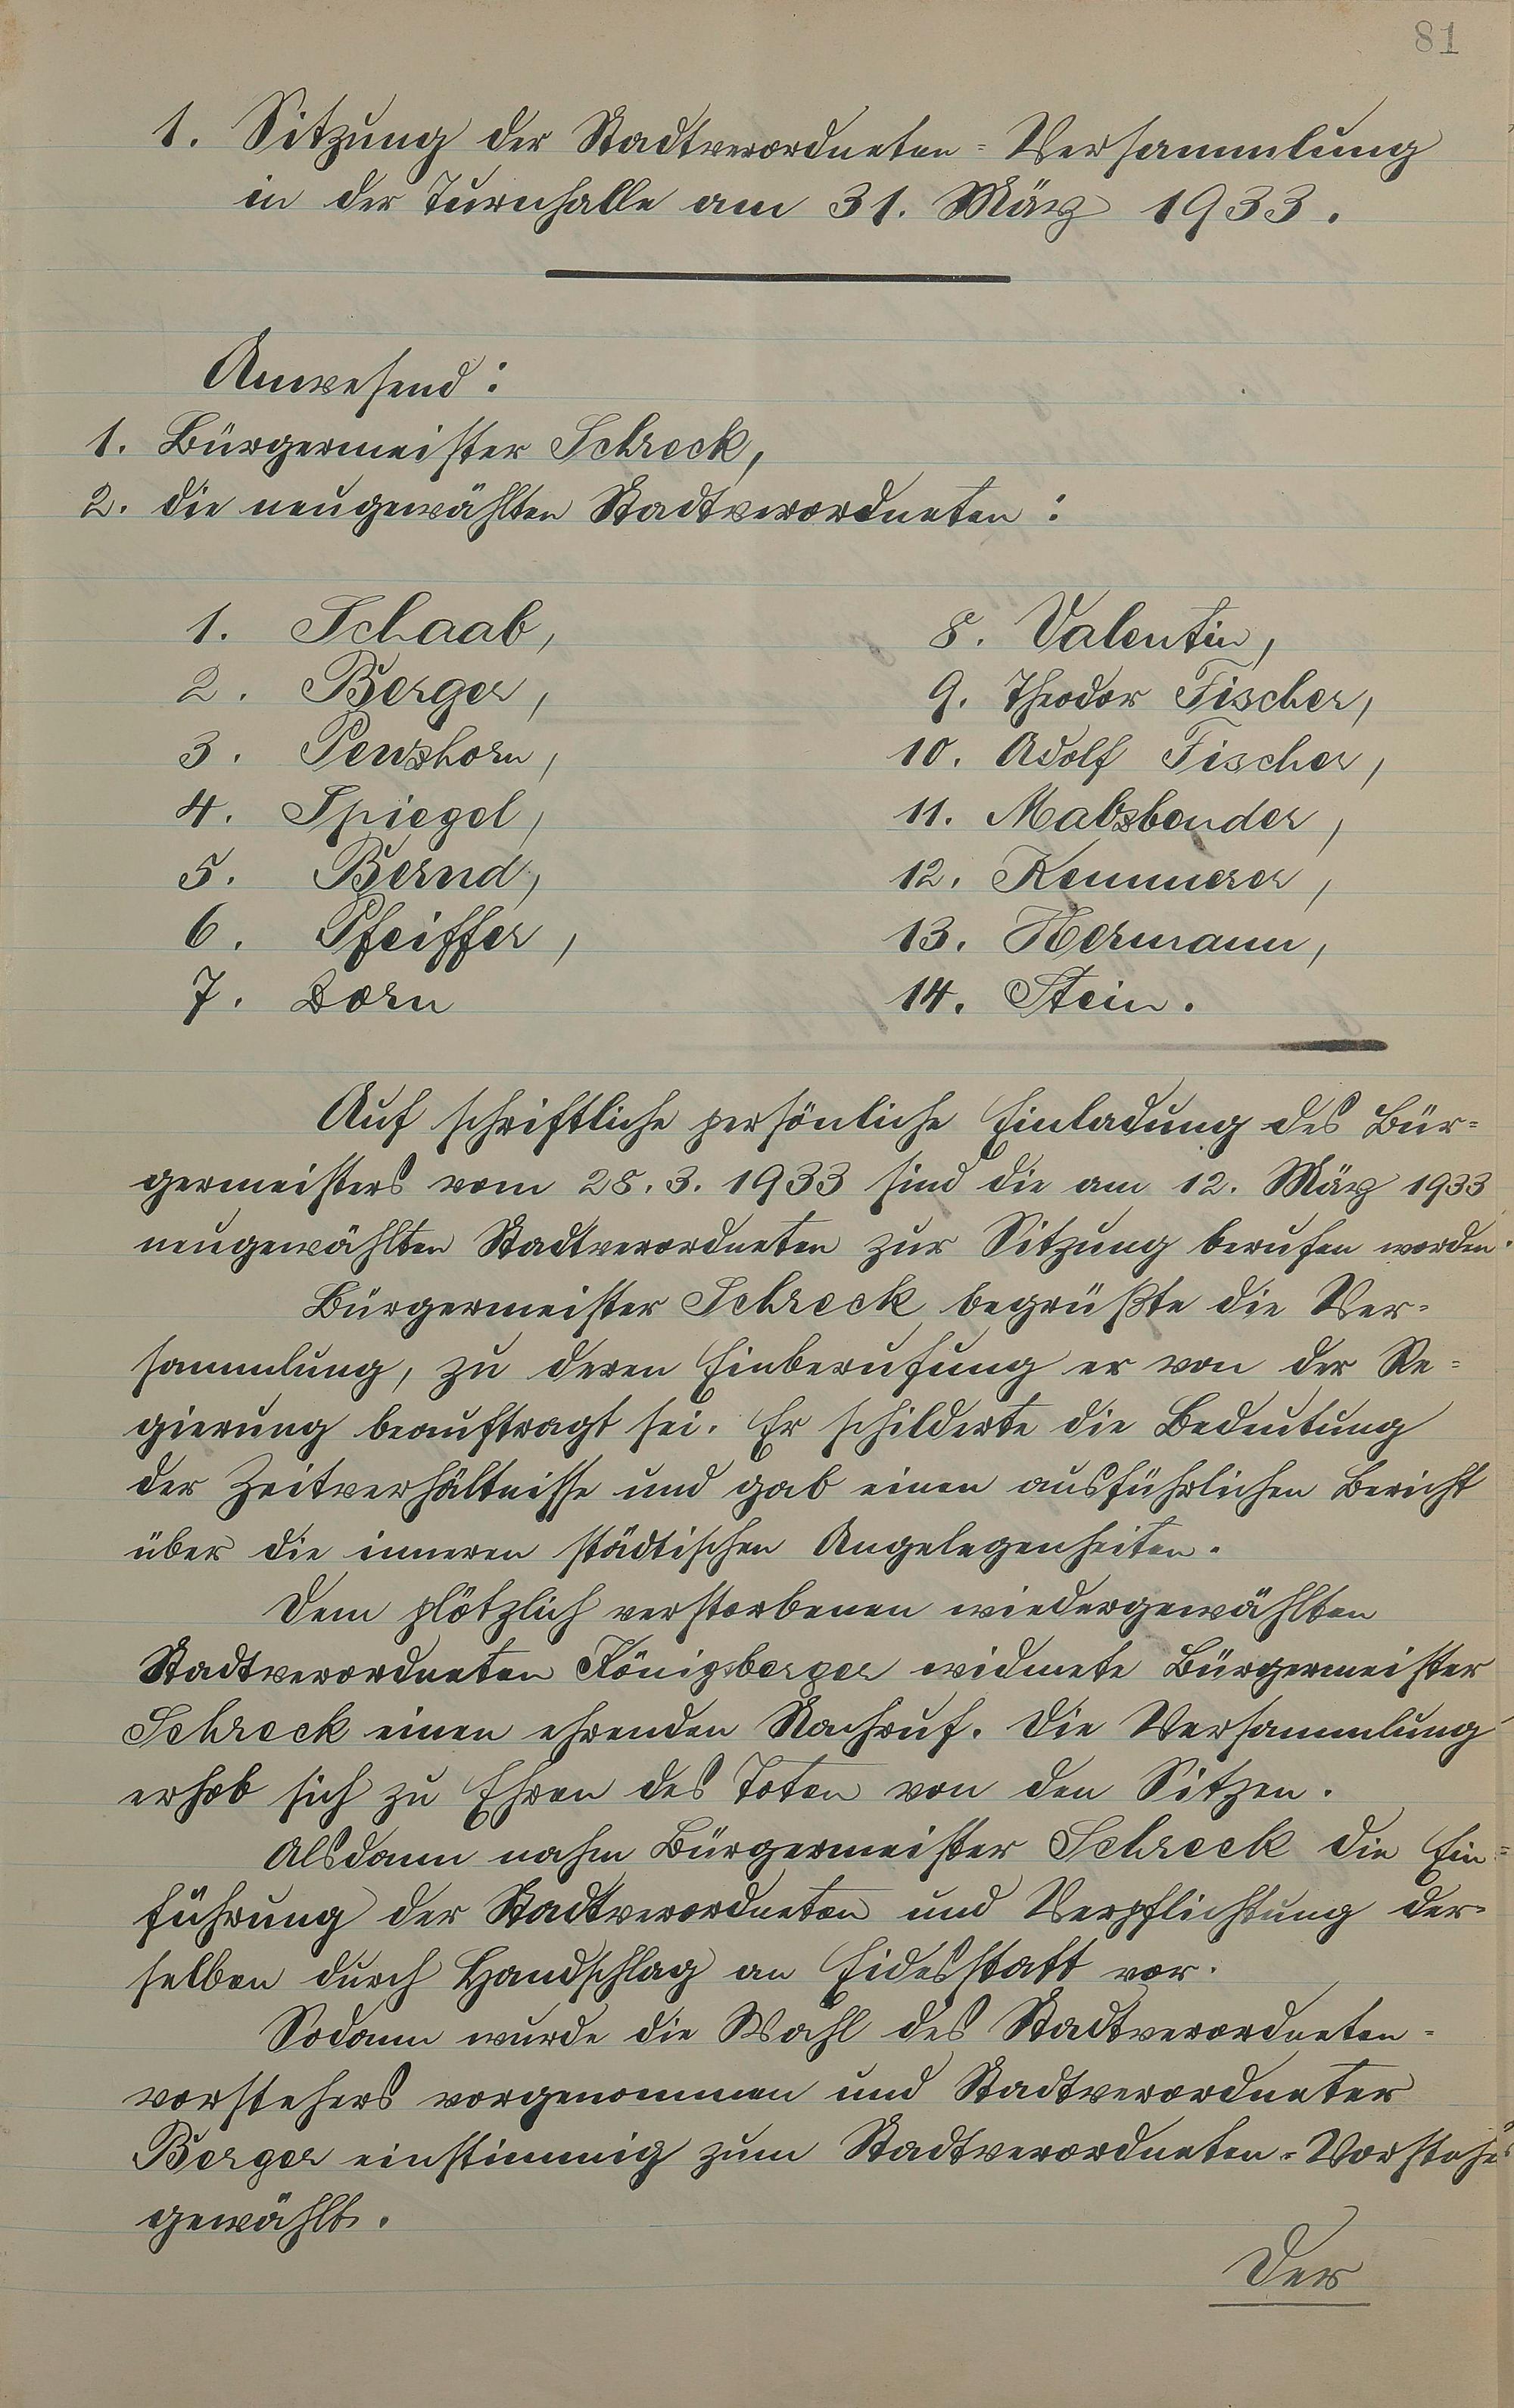 81
1. Sitzung der Stadtverordneten=Versammlung
in der Turnhalle am 31. März 1933.
Anwesend:
1. Bürgermeister Schreck,
2. die neugewählten Stadtverordneten:
1. Schaab,
2. Berger,
3. Penshorn,
4. Spiegel,
5. Bernd,
6. Pfeiffer,
7. Dorn
8. Valentin,
9. Theodor Fischer,
10. Adolf Fischer,
11. Mabsbender,
12. Kemmerer,
13. Hermann,
14. Stein.
Auf schriftliche persönliche Einladung des Bür=
germeisters vom 28.3.1933 sind die am 12. März 1933
neugewählten Stadtverordneten zur Sitzung berufen worden.
Bürgermeister Schreck begrüßte die Ver=
sammlung, zu deren Einberufung er von der Re=
gierung beauftragt sei. Er schilderte die Bedeutung
der Zeitverhältnisse und gab einen ausführlichen Bericht
über die inneren städtischen Angelegenheiten.
Dem plötzlich verstorbenen wiedergewählten
Stadtverordneten Königsberger widmete Bürgermeister
Schreck einen ehrenden Nachruf. Die Versammlung
erhob sich zu Ehren des Toten von den Sitzen.
Alsdann nahm Bürgermeister Schreck die Ein=
führung der Stadtverordneten und Verpflichtung der=
selben durch Handschlag an Eidesstatt vor.
Sodann wurde die Wahl des Stadtverordneten=
vorstehers vorgenommen und Stadtverordneter
Berger einstimmig zum Stadtverordneten=Vorsteher
gewählt.
Der